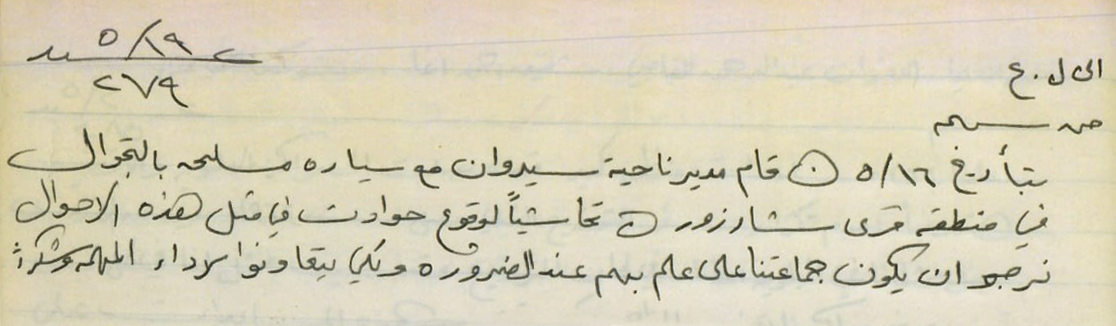 ٥/١٩
٢٧٩
الى ل. ع
من
بتأريخ ٥/١٦ قام مدير ناحية سيروان مع سياره مسلحه بالتجوال
في منطقه قرى شارزور تحاشياً لوقوع حوادث في مثل هذه الاحوال
نرجو ان يكون جماعتنا على علم بهم عند الضروره ولكي يتعاونوا لاداء المهمه وشكراً